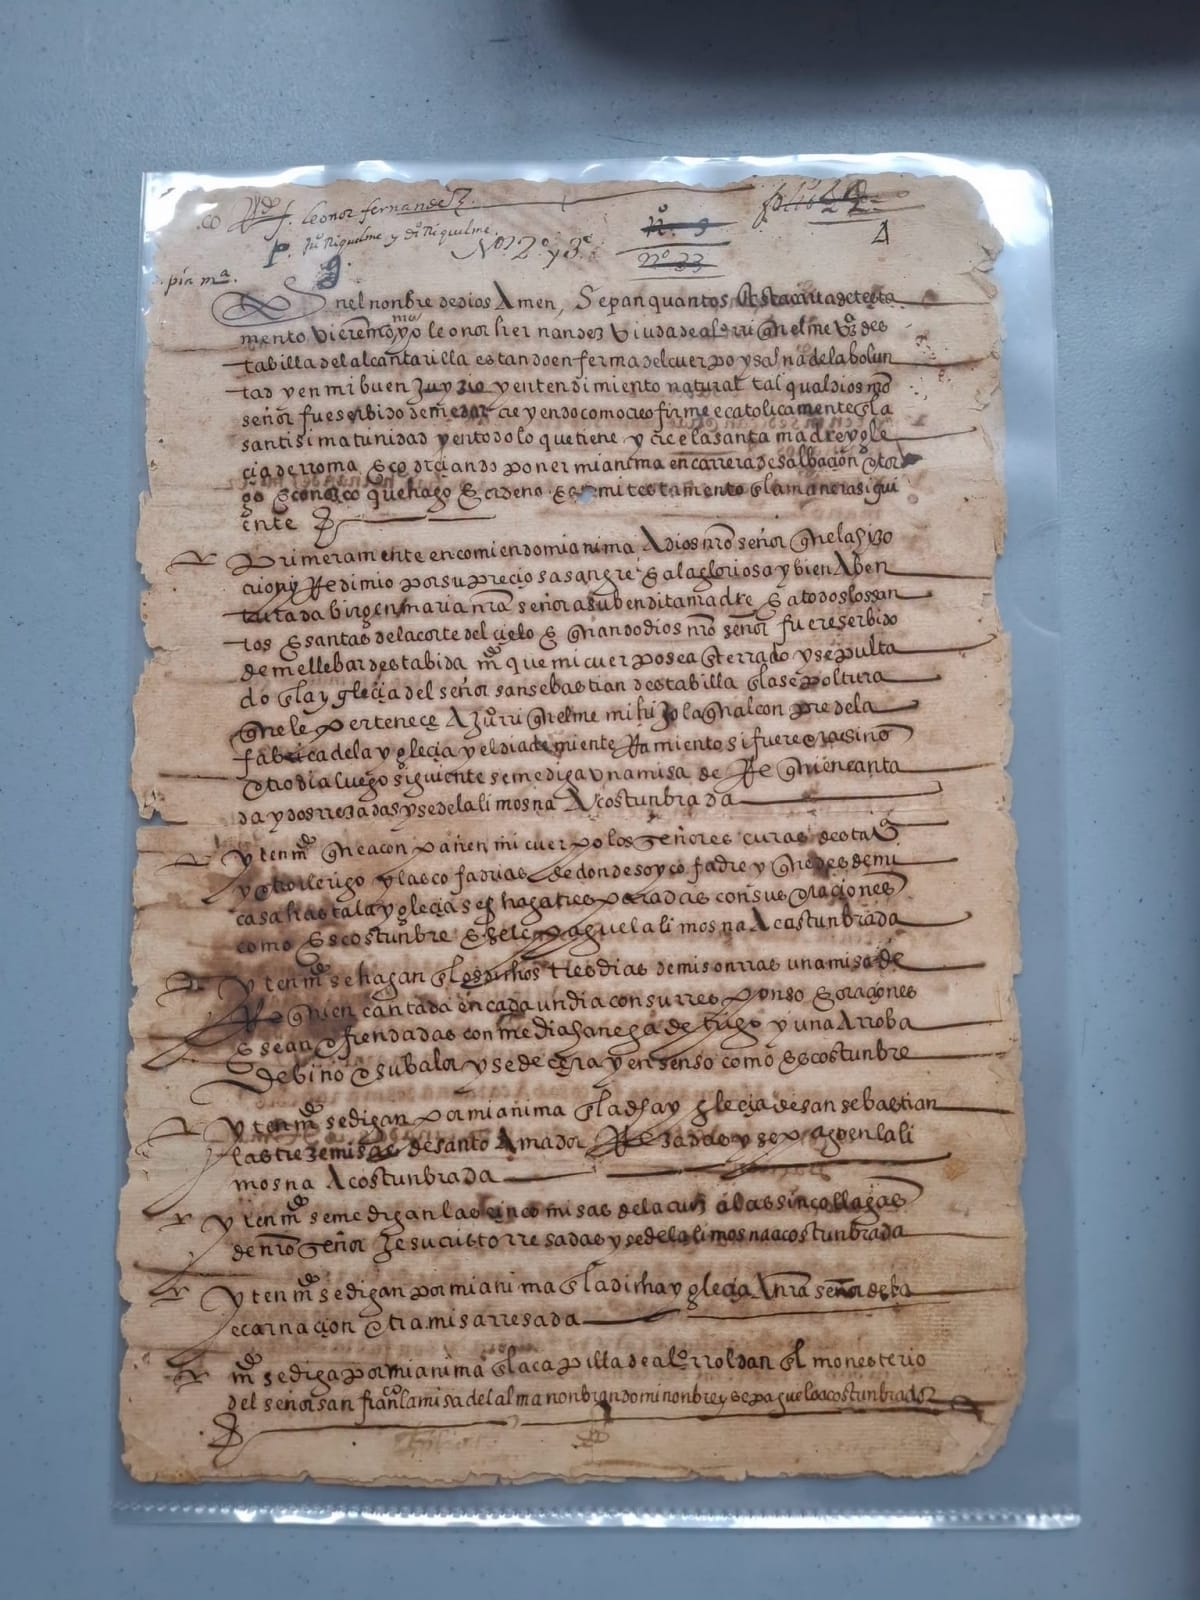 leonor fernandez
P. Ju° Riquelme y d° Riquelme. N° 2° y 3°
n° 9
n° 33
pía mª
En el nonbre de dios Amen, Sepan quantos esta carta de testa
mento vieren como yo leonor hernandez viuda de al° rriquelme vª des
ta billa del alcantarilla estando en ferma del cuerpo y sana de la bolun
tad y en mi buen juyzio y entendimiento natural tal qual dios nro
señor fue serbido de me dar creyendo como creo firme e catolicamente en la
santisima trinidad y en todo lo que tiene y cree la santa madre ygle
cia de rroma E codiciando poner mi anima en carrera de salbacion otor
go E conosco que hago E ordeno este mi testamento en la manera sigui
ente
Primeramente encomiendo mi anima A dios nro señor que la hizo
crio y Redimio por su preciosa sangre E a la gloriosa y bien Aben
turada birgen maria nra señora su bendita madre E a todos los san
tos E santas de la corte del cielo E quando dios nro señor fuere serbido
de me llebar desta bida mdo que mi cuerpo sea enterrado y sepulta
do en la yglecia del señor san sebastian desta billa en la sepoltura
que le pertenece A ju° rriquelme mi hijo la qual conpre de la
fabrica de la yglecia y el dia de mi enterramiento si fuere ora sino
otro dia luego siguiente se me diga una misa de Requien canta
da y dos rrezadas y se de la limosna Acostunbrada
yten mdo que aconpañen mi cuerpo los señores curas desta vª
y otro clerigo y las cofadrias de donde soy cofadre y que desde mi
casa hasta la yglecia se hagan tres paradas con sus oraciones
como es costunbre E se les pague la limosna Acostunbrada
yten mdo se hagan en los dichos tres dias de mis onrras una misa de
Requien cantada en cada un dia con su rresponso E oraciones
E sean ofrendadas con media fanega de trigo y una Arroba
de bino o su balor y se de cera y ensenso como es costunbre
yten mdo se digan por mi anima en la dha yglecia de san sebastian
las treze misas de santo Amador Rezadas y se paguen la li
mosna Acostunbrada
yten mdo se me digan las cinco misas de la cruz a las sinco llagas
de nro señor Jesucristo rresadas y se de la limosna acostunbrada
yten mdo se digan por mi anima en la dicha yglecia A nra señora de la
ecarnacion otra misa rresada
mdo se diga por mi anima en la capilla de al° rroldan en el monesterio
del señor san franco la misa del alma nonbrando mi nonbre y se pague lo acostunbrado